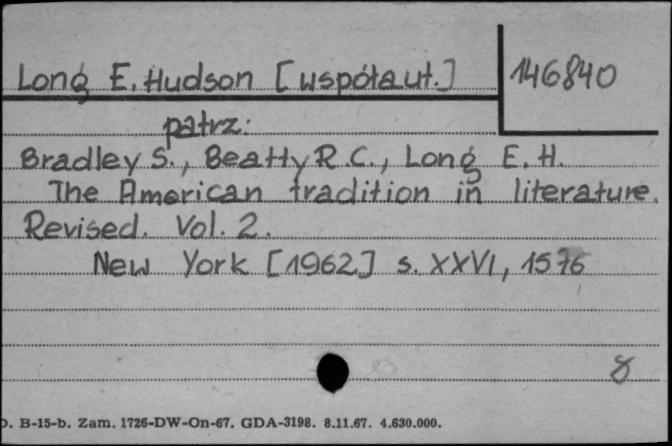 Long E. Hudson [współaut.] 146840
patrz:
Bradley S., Beatty R.C., Long E. H.
The American tradition in literature.
Revised. Vol. 2.
New York [1962] s. XXVI, 1576
8
D. B-15-b. Zam. 1726-DW-On-67. GDA-3198. 8.11.67. 4.630.000.